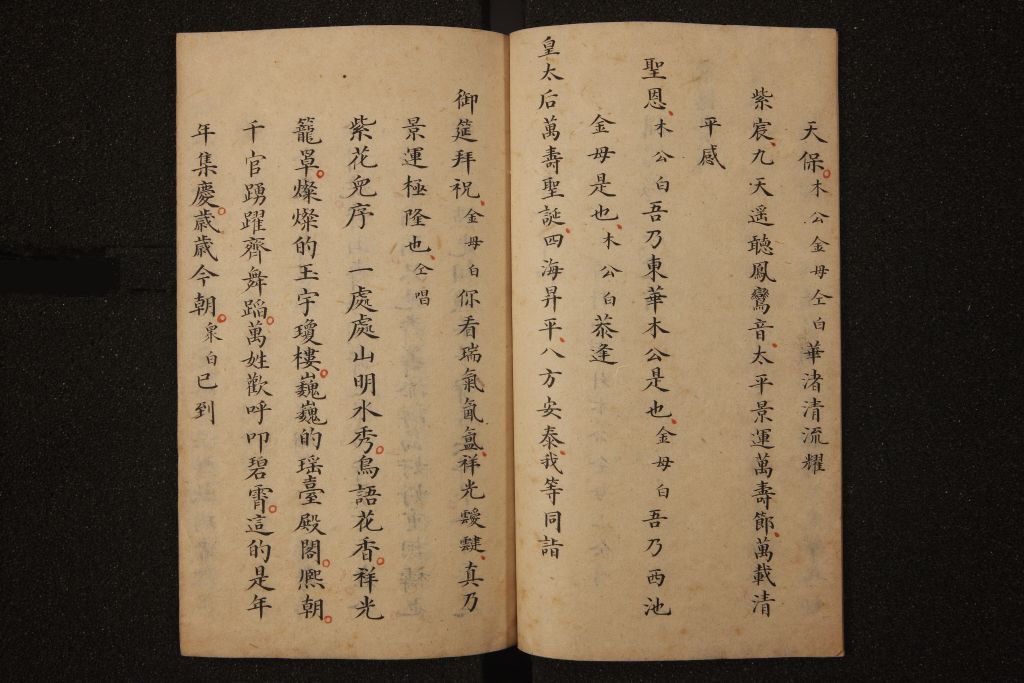 天保木公金母仝白華渚清流耀
紫宸九天遥聼鳳鸞音太平景運萬壽節萬載清
平感
聖恩木公白吾乃東華木公是也金母白吾乃西池
金母是也木公白恭逢
皇太后萬壽聖誕四海昇平八方安泰我等同詣
御筵拜祝金母白你看瑞氣氤氳祥光靉靆真乃
景運極隆也仝唱
紫花兒序 一處處山明水秀鳥語花香祥光
籠罩燦燦的玉宇瓊樓巍巍的瑶臺殿閣熈朝
千官踴躍齊舞蹈萬姓歡呼叩碧霄這的是年
年集慶歲歲今朝衆白已到